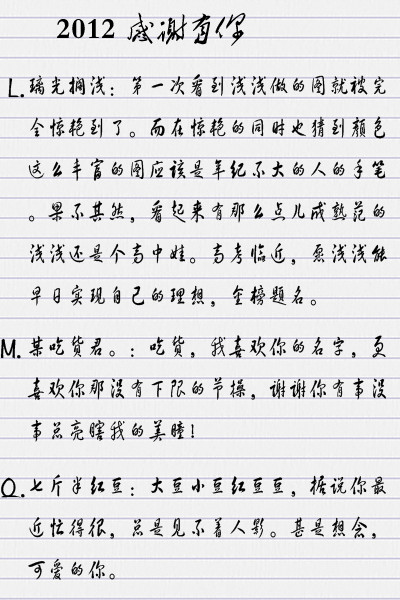 2012 感谢有你
L.璃光搁浅：第一次看到浅浅做的图就被完
全惊艳到了。而在惊艳的同时也猜到颜色
这么丰富的图应该是年纪不大的人的手笔
。果不其然，看起来有那么点儿成熟范的
浅浅还是个高中娃。高考临近，愿浅浅能
早日实现自己的理想，金榜题名。
M.某吃货君。：吃货，我喜欢你的名字，更
喜欢你那没有下限的节操，谢谢你有事没
事总亮瞎我的美瞳！
Q.七斤半红豆：大豆小豆红豆豆，据说你最
近忙得很，总是见不着人影。甚是想念，
可爱的你。